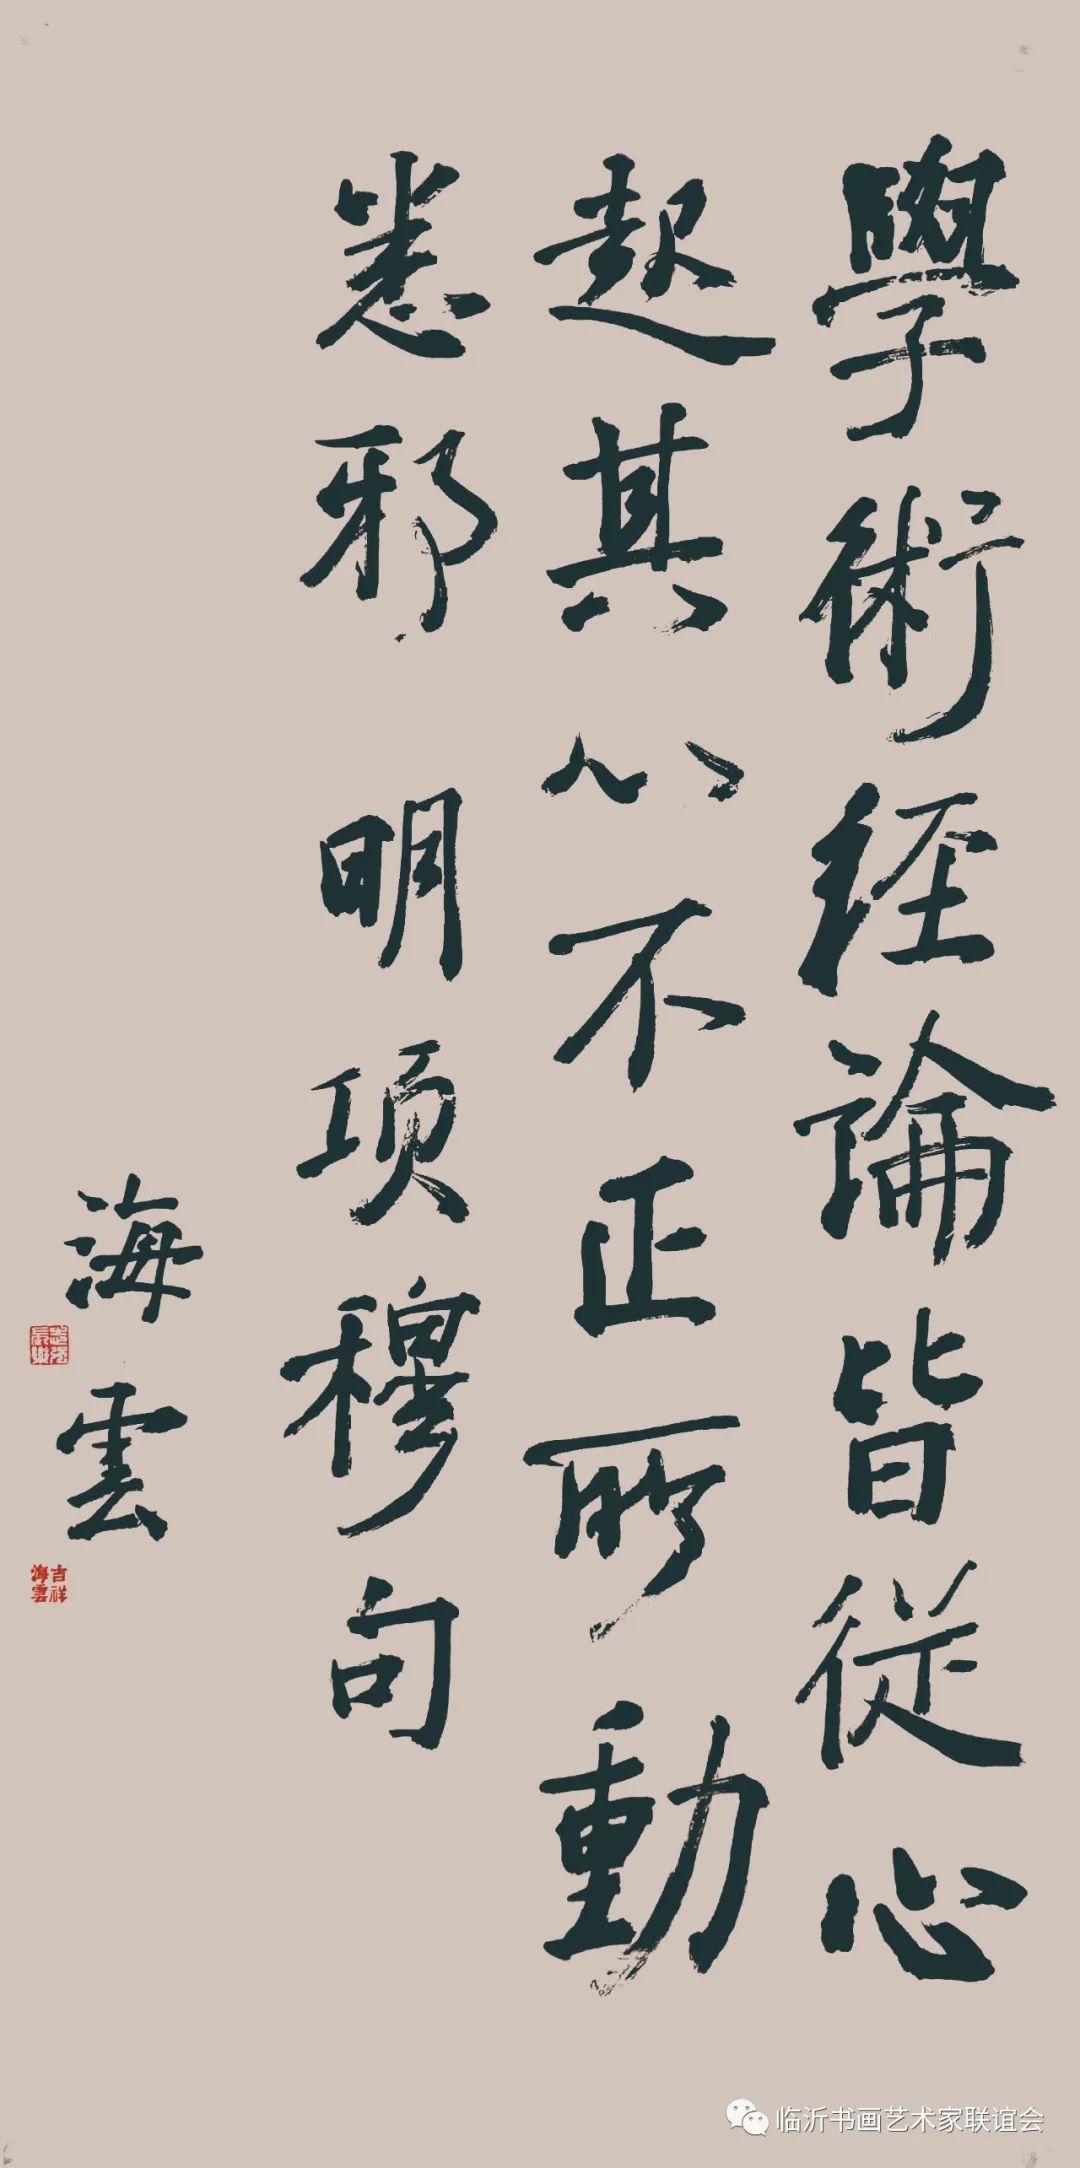 學術經論皆從心
起其心不正所動
悉邪 明項穆句
海雲
吉祥
海雲
临沂书画艺术家联谊会